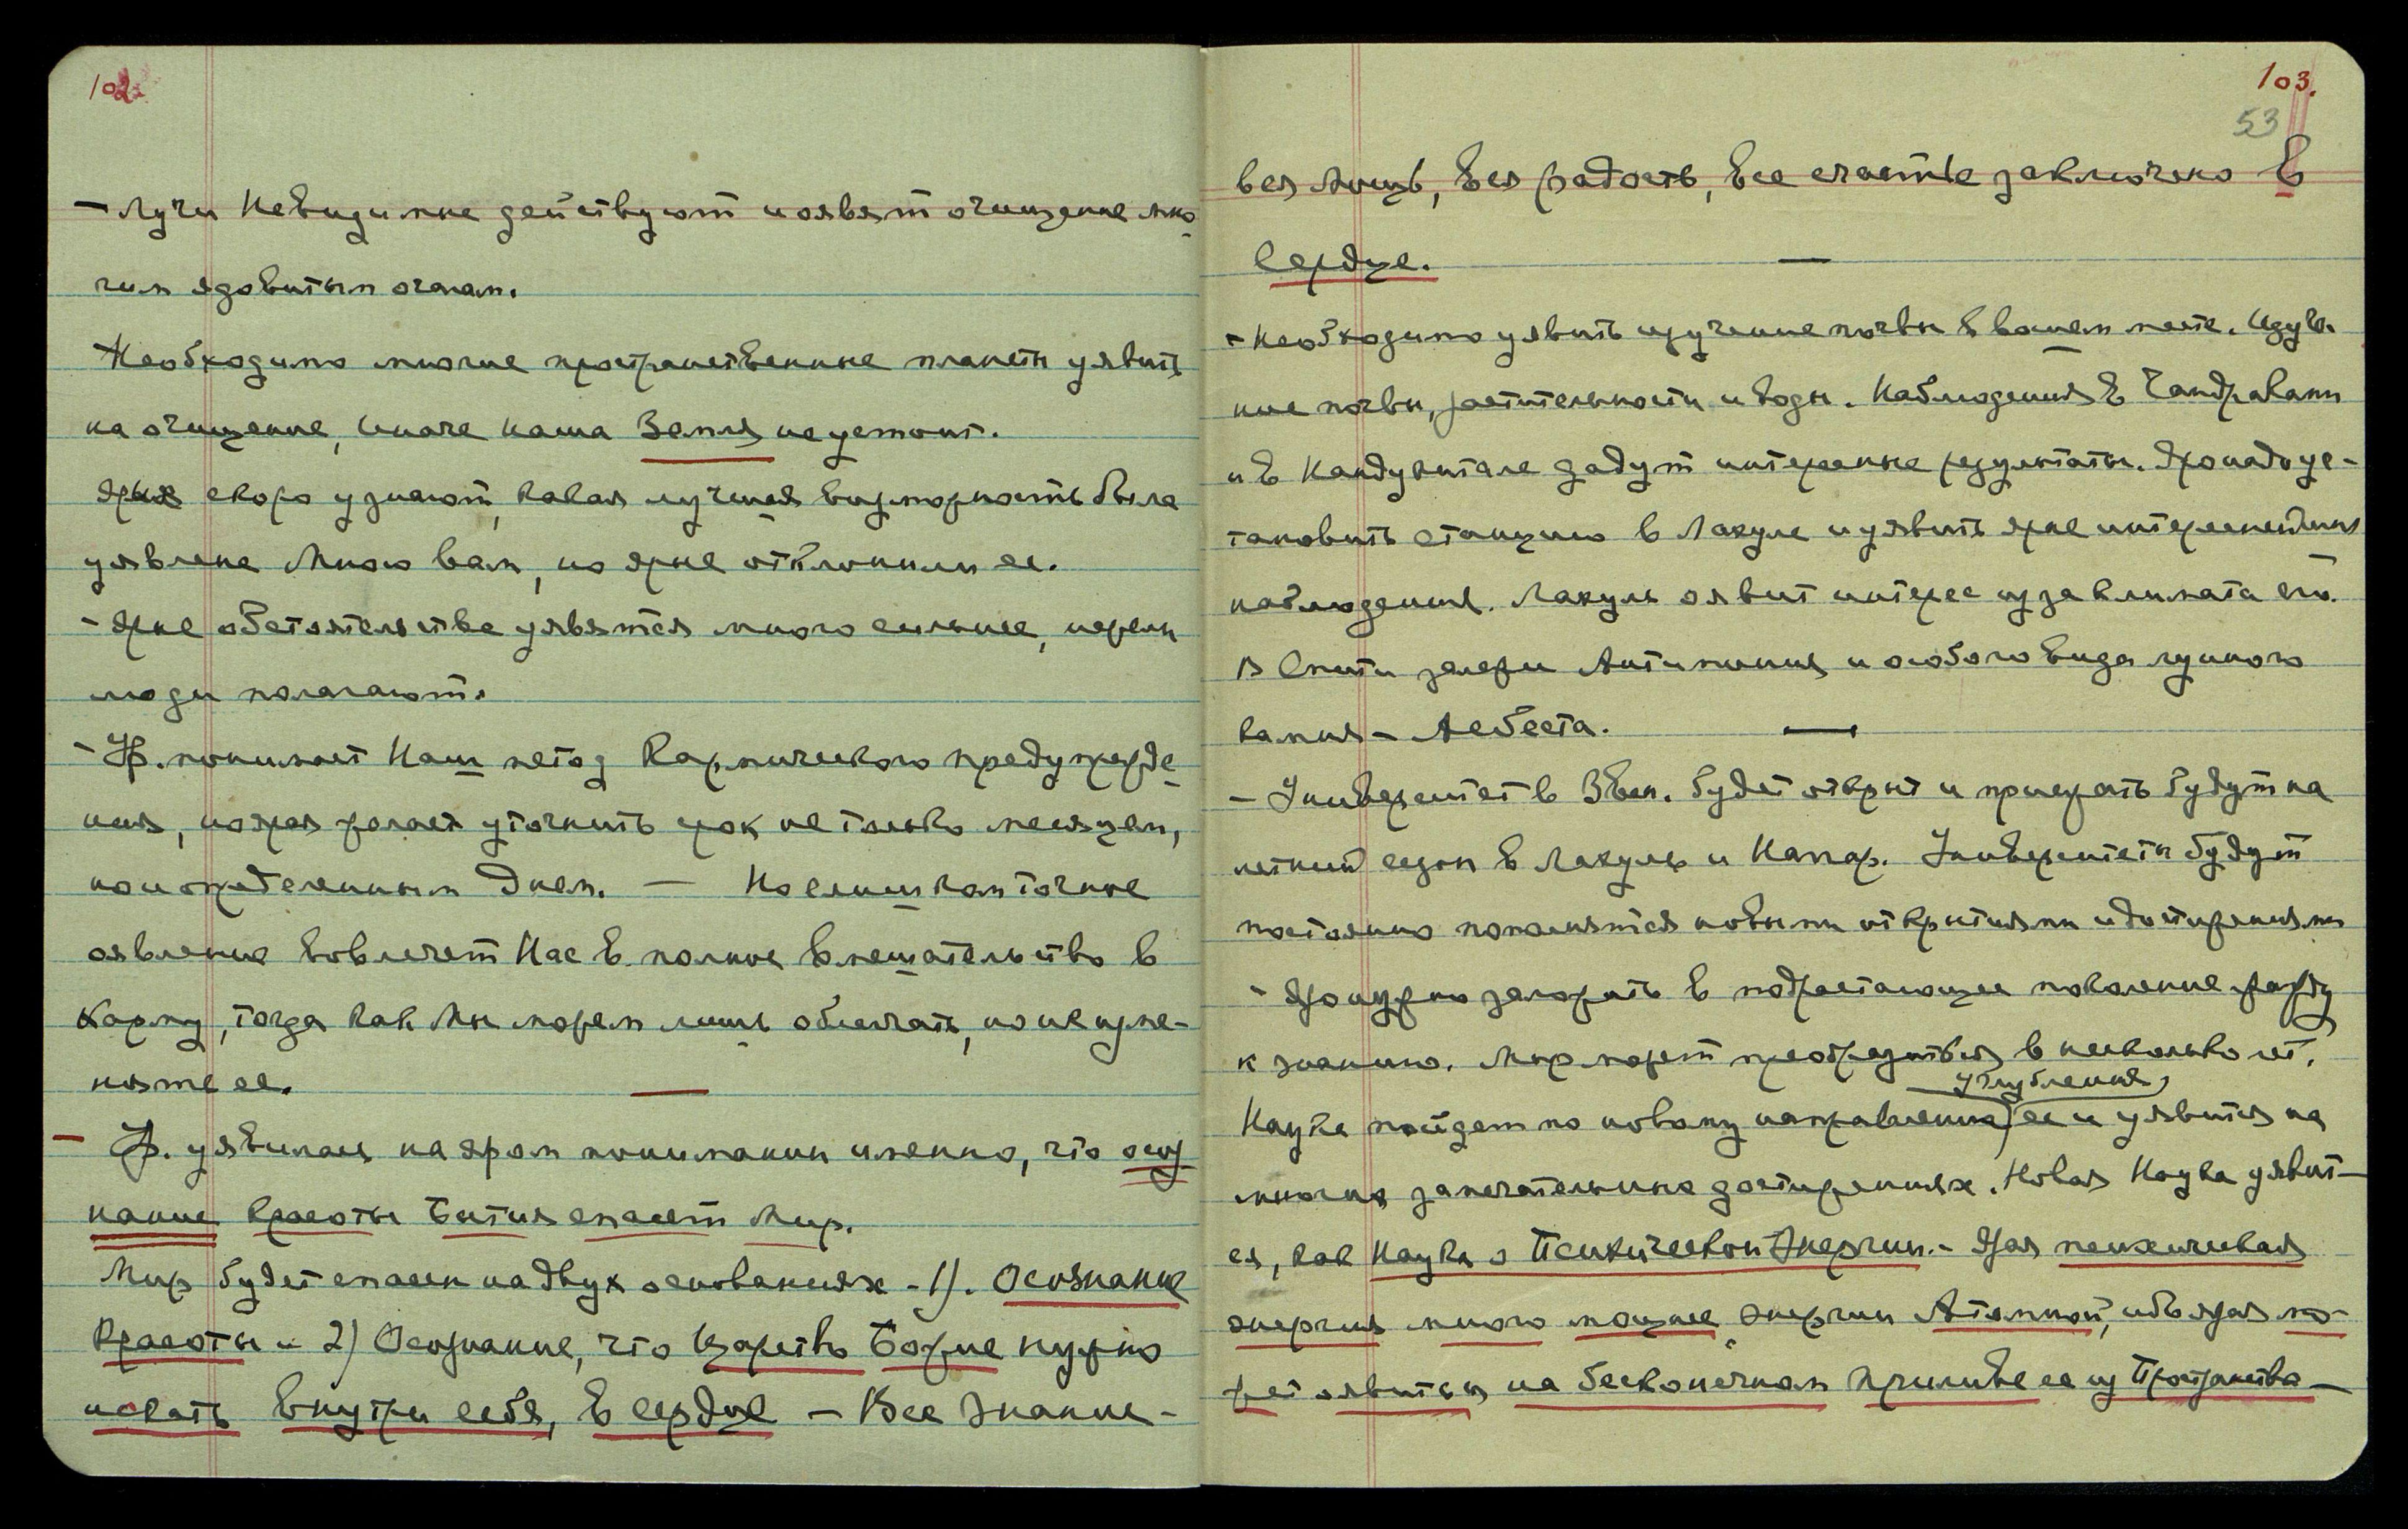 102
- Лучи Невидимые действуют и оявят очищение мно-
гим ядовитым очагам.
Необходимо многие пространственные планеты уявить
на очищение, иначе наша Земля не устоит.
Ярые скоро узнают, какая лучшая была
уявлена Мною вам, но ярые отклонили ее.
- Ярые обстоятельства уявятся много сильнее, нежели
люди полагают.
- Ур. понимает Наш метод Кармического предупрежде-
ния, но ярая желает уточнить срок не только месяцем,
но и определенным днем. — Но слишком точное
оявление вовлечет Нас в полное вмешательство в
Карму, тогда как Мы можем лишь облегчать, но не изме-
няте ее.
- Ур. уявилась на яром понимании именно, что осоз-
нание Красоты Бытия спасет Мир.
Мир будет спасен на двух основаниях - 1). Осознание
Красоты и 2) Осознание, что Царство Божие нужно
искать внутри себя, в сердце - Все Знание -
103.
53
вся мощь, вся радость, все счастье заключено в
Сердце.
- Необходимо уявить изучение почвы в вашем месте. Изуче-
ние почвы, растительности и воды. Наблюдения в
и в дадут интересные результаты. Яро надо ус-
тановить станцию в Лахуле и уявить ярые интереснейшие
наблюдения. Лахуль оявит интерес из за климата его.
В Спити залежи Антимония и особого вида лунного
камня - Асбеста.
- Университет в Звен. будет открыт и приезжать будут на
летний сезон в Лахуль и Наггар. Университеты будут
постоянно пополнятся новыми открытиями и достижениями
- Яро нужно заложить в подрастающее поколение жажду
к знанию. Мир может преобразиться в несколько лет.
углубления,
Наука пойдет по новому направлению ее и уявится на
многих замечательных достижениях. Новая Наука уявит-
ся, как Наука о Психической Энергии. - Ярая психическая
энергия много мощнее энергии Атомной, ибо ярая мо-
жет оявиться на бесконечном приливе ее из Пространства —